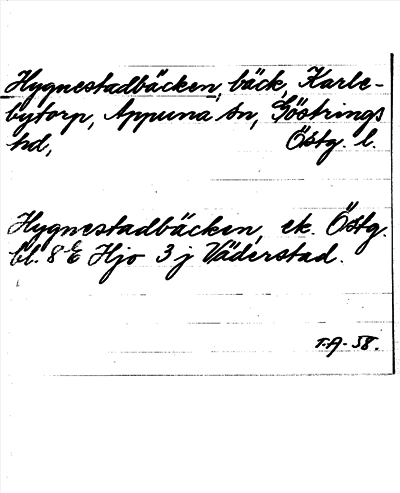 Hygnestadbäcken, bäck, Karle-
bytorp, Appuna sn, Göstrings
hd, Östg. l.
Hygnestadbäcken, ek. Östg.
bl. 8 E Hjo 3 j Väderstad.
T.A. 58.